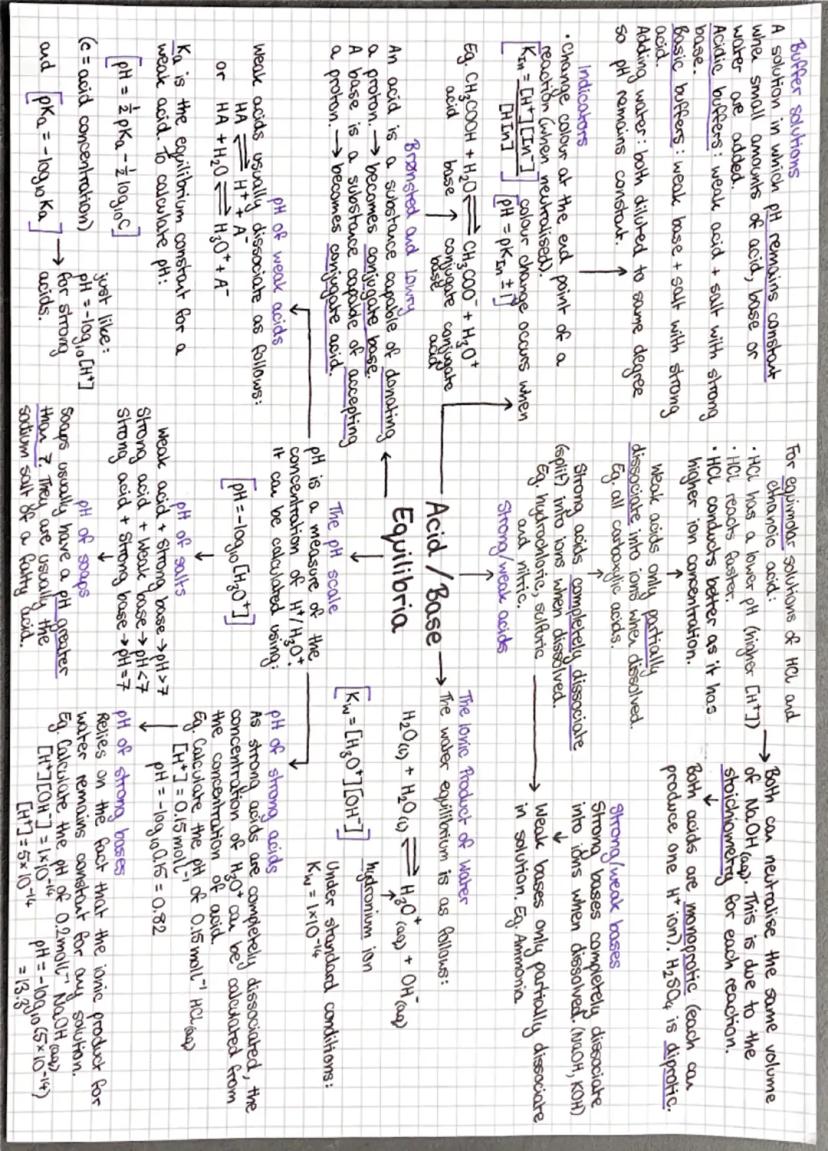 Buffer solutions
A solution in which pH remains constant
when small amounts of acid, base or
water are added.
Acidic buffers: weak acid + salt with strong
base.
Basic buffers: weak base + salt with strong
acid.
Adding water: both diluted to same degree
so pH remains constant.
Indicators
• Change colour at the end point of a
reaction (when neutralised).
[KIn = [H⁺][In⁻] / [HIn]] colour change occurs when
[pH = pKIn ± 1]
Eg. CH₃COOH + H₂O ⇌ CH₃COO⁻ + H₃O⁺
acid base → conjugate conjugate
base acid
Brønsted and Lowry
An acid is a substance capable of donating
a proton. → becomes conjugate base.
A base is a substance capable of accepting
a proton. → becomes conjugate acid.
pH of weak acids
Weak acids usually dissociate as follows:
HA ⇌ H⁺ + A⁻
or HA + H₂O ⇌ H₃O⁺ + A⁻
Ka is the equilibrium constant for a
weak acid. To calculate pH:
[pH = ½pKa - ½log₁₀C]
(c = acid concentration)
and [pKa = -log₁₀Ka]
just like:
pH = -log₁₀[H⁺]
→ for strong
acids.
For equimolar solutions of HCl and
ethanoic acid:
• HCl has a lower pH (higher [H⁺])
• HCl reacts faster.
• HCl conducts better as it has
higher ion concentration.
Weak acids only partially
dissociate into ions when dissolved.
Eg. all carboxylic acids.
Strong acids completely dissociate
(split) into ions when dissolved.
Eg. hydrochloric, sulfuric
and nitric.
Strong/weak acids
Acid/Base
Equilibria
The pH scale
pH is a measure of the
concentration of H⁺/H₃O⁺.
It can be calculated using:
[pH = -log₁₀[H₃O⁺]]
pH of salts
Weak acid + strong base → pH > 7
Strong acid + weak base → pH < 7
Strong acid + strong base → pH = 7
pH of soaps
Soaps usually have a pH greater
than 7. They are usually the
sodium salt of a fatty acid.
Both can neutralise the same volume
of NaOH(aq). This is due to the
stoichiometry for each reaction.
Both acids are monoprotic (each can
produce one H⁺ ion). H₂SO₄ is diprotic.
Strong/weak bases
Strong bases completely dissociate
into ions when dissolved. (NaOH, KOH)
Weak bases only partially dissociate
in solution. Eg. Ammonia
The Ionic Product of Water
The water equilibrium is as follows:
H₂O(l) + H₂O(l) ⇌ H₃O⁺(aq) + OH⁻(aq)
hydronium ion
[Kw = [H₃O⁺][OH⁻]]
Under standard conditions:
Kw = 1×10⁻¹⁴
pH of strong acids
As strong acids are completely dissociated, the
concentration of H₃O⁺ can be calculated from
the concentration of acid.
Eg. Calculate the pH of 0.15 mol L⁻¹ HCl(aq)
[H⁺] = 0.15 mol L⁻¹
pH = -log₁₀0.15 = 0.82
pH of strong bases
Relies on the fact that the ionic product for
water remains constant for any solution.
Eg. Calculate the pH of 0.2 mol L⁻¹ NaOH(aq)
[H⁺][OH⁻] = 1×10⁻¹⁴
[H⁺] = 5×10⁻¹⁴ pH = -log₁₀(5×10⁻¹⁴)
= 13.3